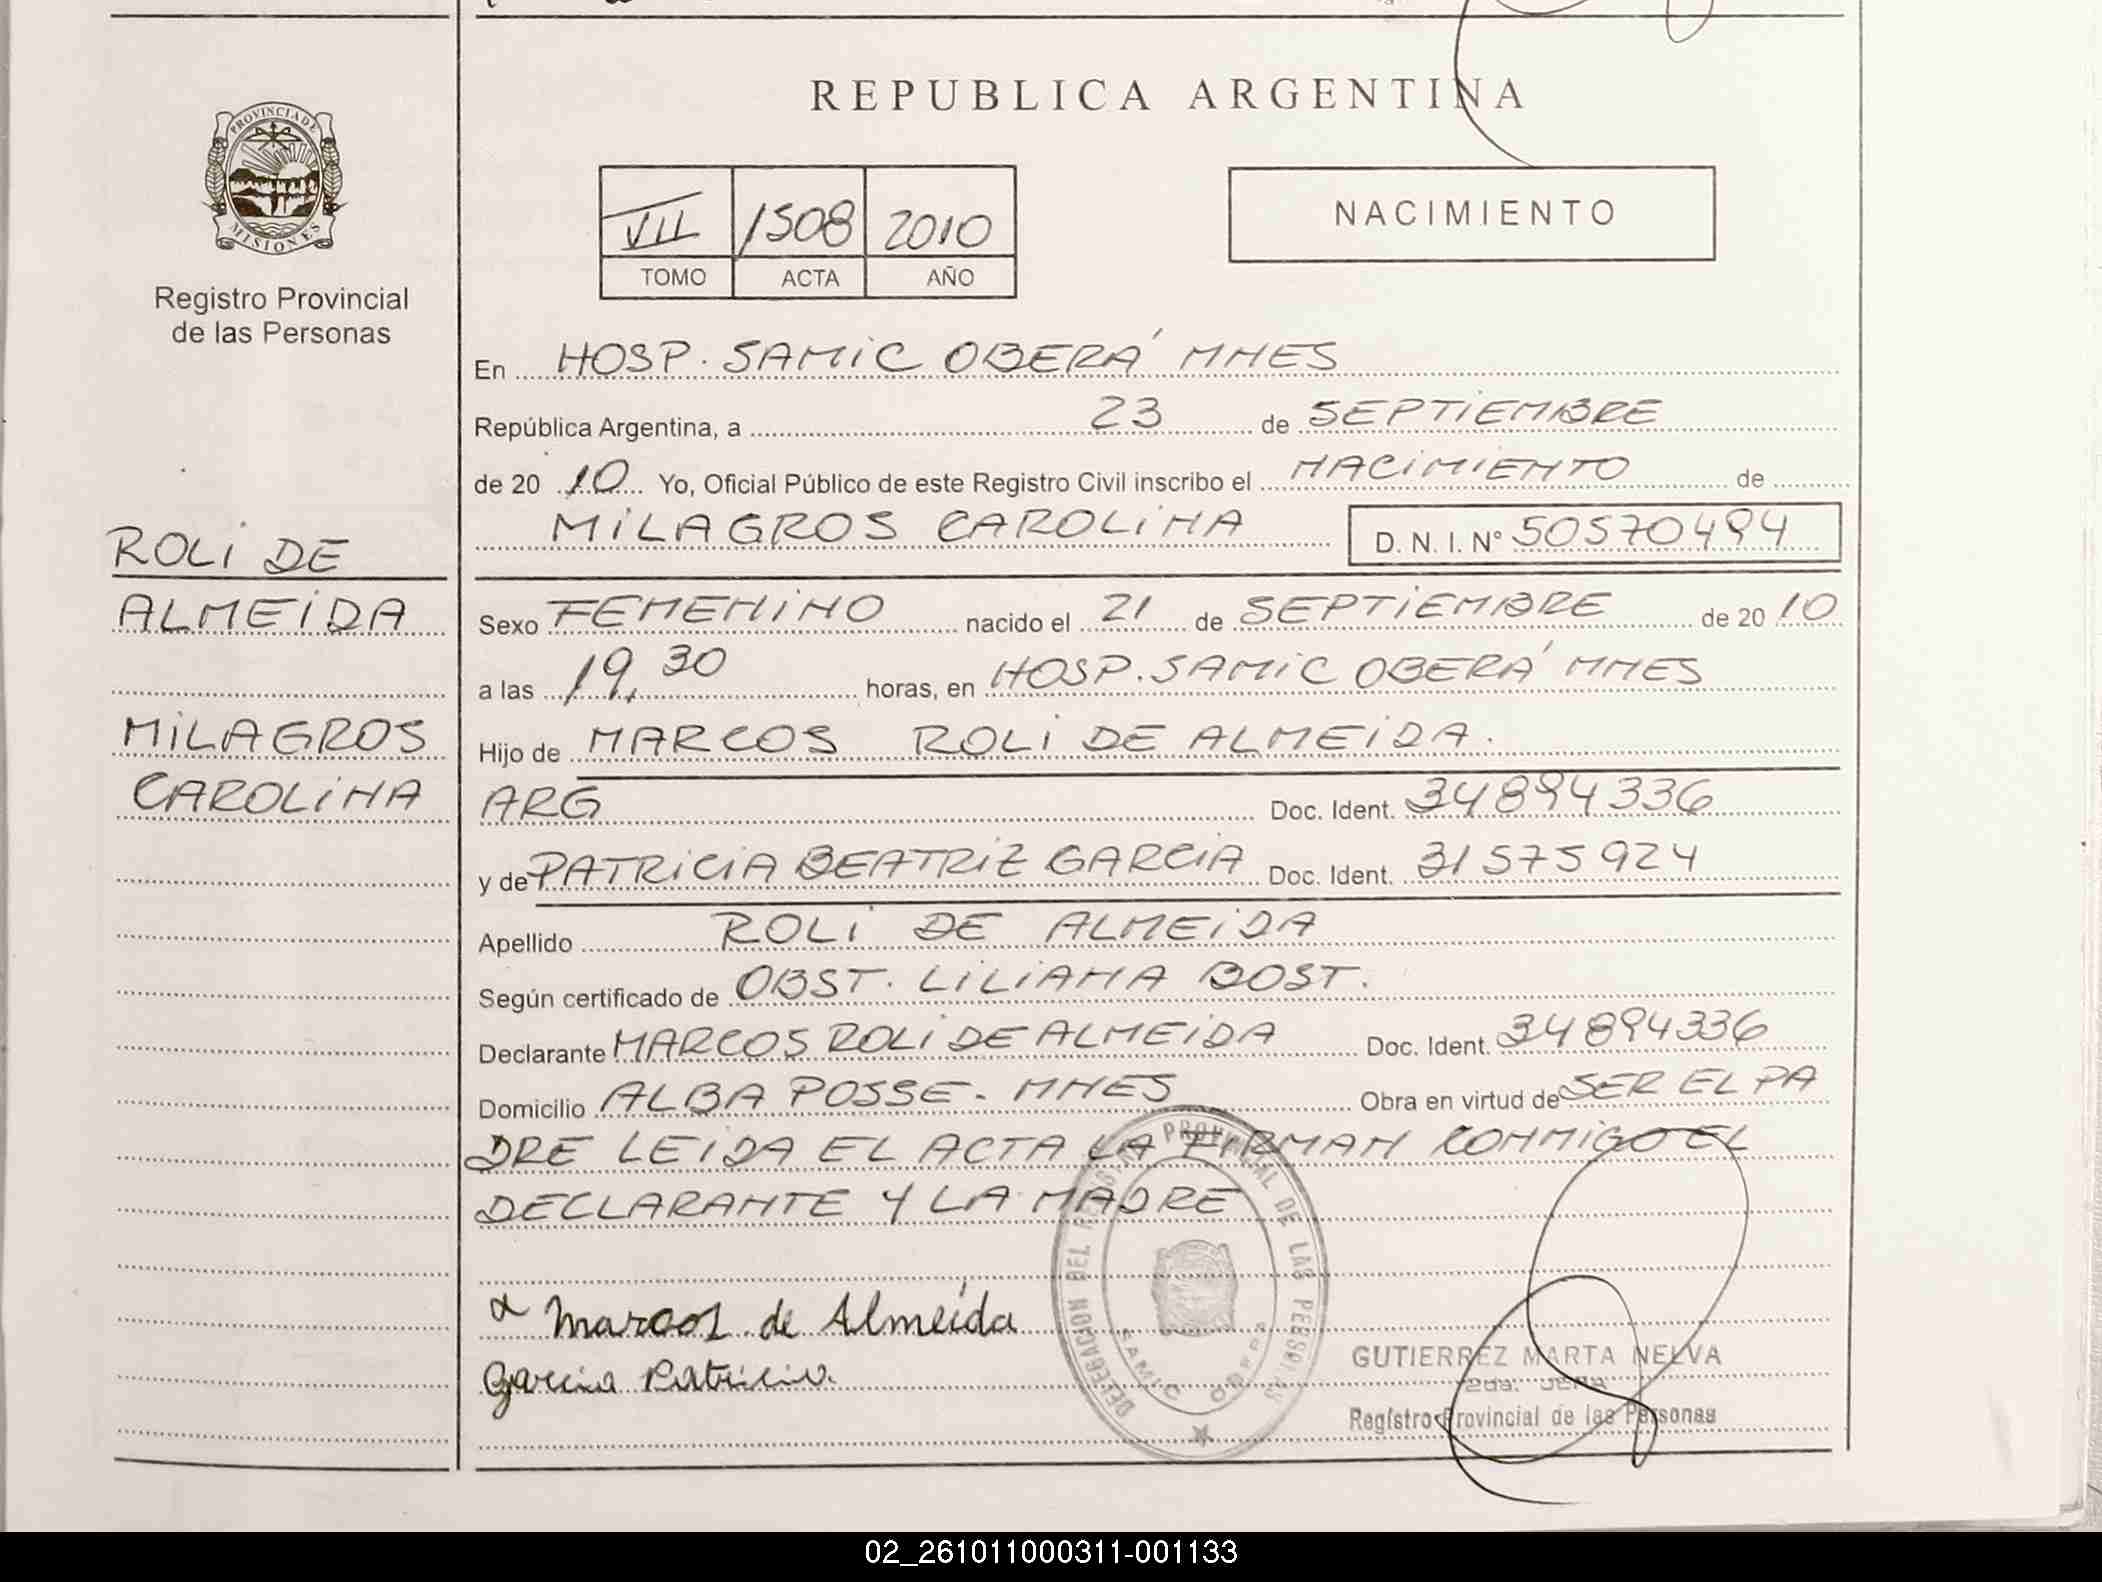 REPUBLICA ARGENTINA
PROVINCIA DE
MISIONES
Registro Provincial
de las Personas
VII 1508 2010
TOMO ACTA AÑO
NACIMIENTO
En HOSP. SAMIC OBERÁ MNES
República Argentina, a 23 de SEPTIEMBRE
de 20 10 Yo, Oficial Público de este Registro Civil inscribo el NACIMIENTO de
MILAGROS CAROLINA D. N. I. N° 50570494
ROLI DE
ALMEIDA
MILAGROS
CAROLINA
Sexo FEMENINO nacido el 21 de SEPTIEMBRE de 20 10
a las 19,30 horas, en HOSP. SAMIC OBERÁ MNES
Hijo de MARCOS ROLI DE ALMEIDA.
ARG Doc. Ident. 34894336
y de PATRICIA BEATRIZ GARCIA Doc. Ident. 31575924
Apellido ROLI DE ALMEIDA
Según certificado de OBST. LILIANA BOST.
Declarante MARCOS ROLI DE ALMEIDA Doc. Ident. 34894336
Domicilio ALBA POSSE. MNES Obra en virtud de SER EL PA
DRE LEIDA EL ACTA LA FIRMAN CONMIGO EL
DECLARANTE Y LA MADRE
Marcos de Almeida
Garcia Patricia
DELEGACION DEL REGISTRO PROVINCIAL DE LAS PERSONAS
SAMIC OBERA
GUTIERREZ MARTA NELVA
2da. JEFA
Registro Provincial de las Personas
02_261011000311-001133